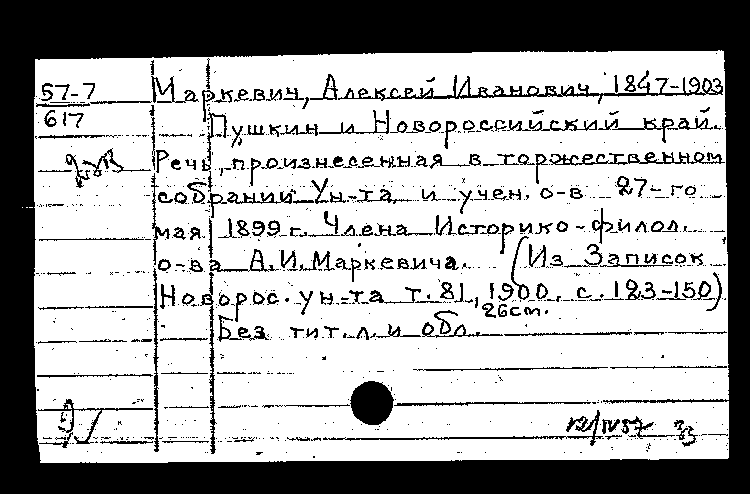 57-7 Маркевич, Алексей Иванович, 1847-1903
617 Пушкин и Новороссийский край.
Речь, произнесенная в торжественном
собрании Ун-та и учен. о-в 27-го
мая 1899 г. Члена Историко-филол.
о-ва А.И. Маркевича. (Из Записок
Новорос. ун-та т. 81, 1900. с. 123-150)
26 ст.
Без тит. л. и обл.
12/IV 57